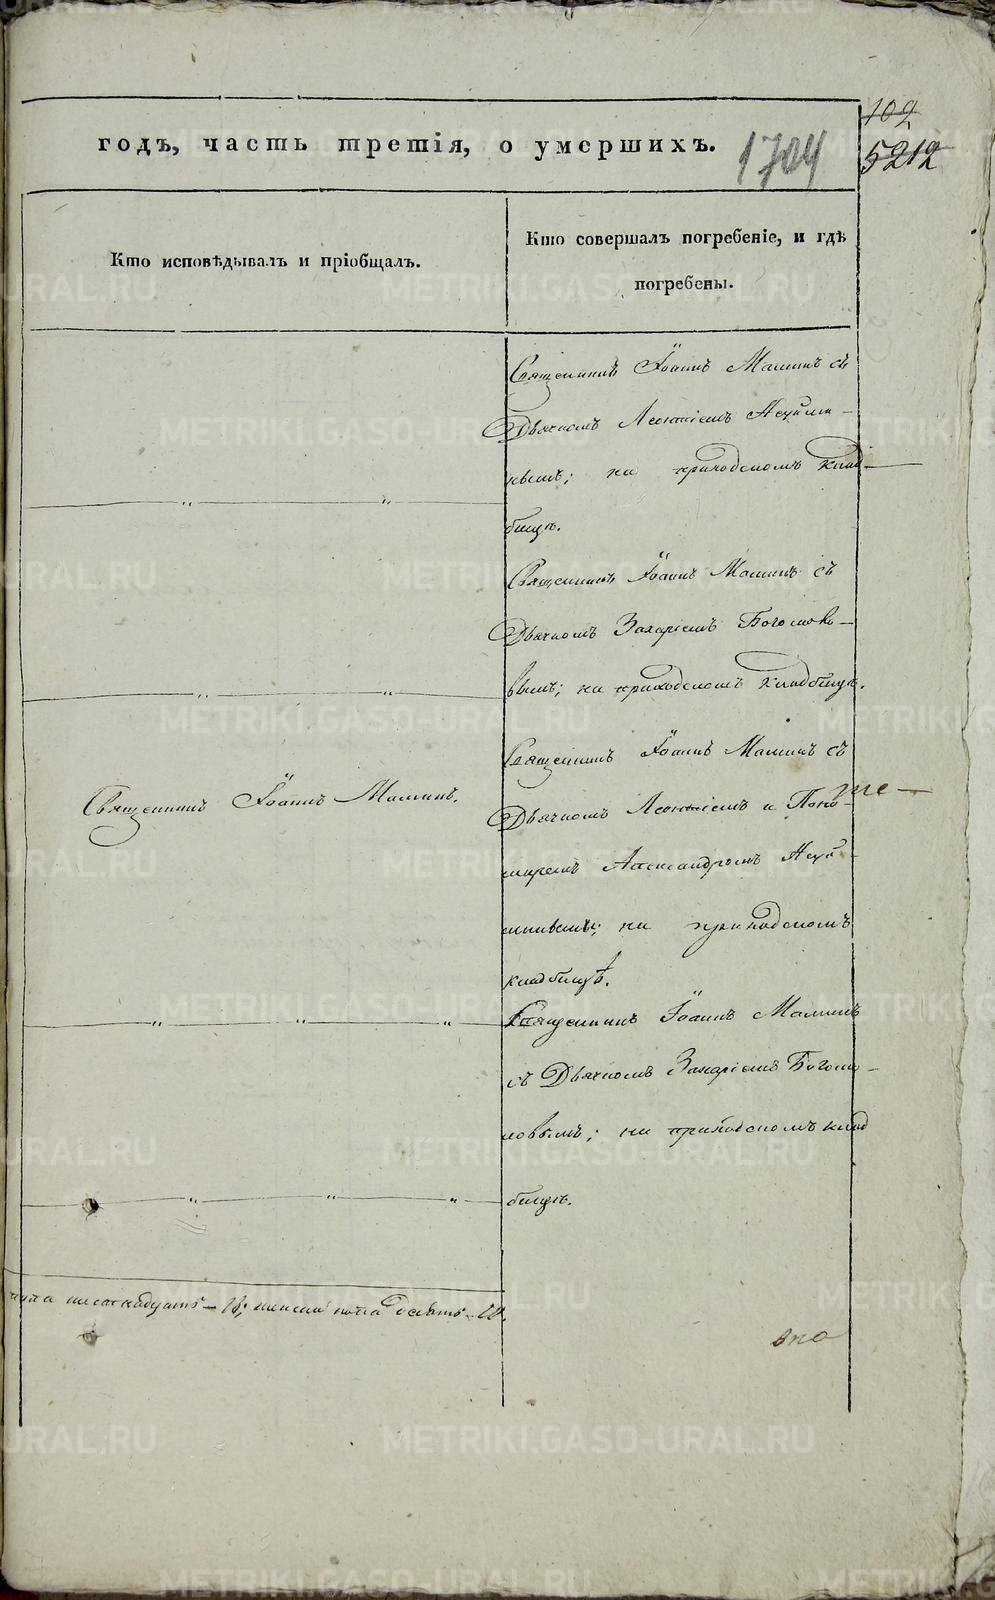 102
5212
годъ, часть третія, о умершихъ.
1704
Кто исповѣдывалъ и пріобщалъ.
Кто совершалъ погребеніе, и гдѣ
погребены.
Священникъ Іоаннъ Маминъ съ
Дьячкомъ Леонтіемъ
нымъ; на приходскомъ клад-
бищѣ.
Священникъ Іоаннъ Маминъ съ
Дьячкомъ Захаріемъ Богомоло-
вымъ; на приходскомъ кладбищѣ.
Священникъ Іоаннъ Маминъ съ
Священникъ Іоаннъ Маминъ.
Дьячкомъ Леонтіемъ и Поно-
маремъ Александромъ
на приходскомъ
кладбищѣ.
Священникъ Іоаннъ Маминъ
съ Дьячкомъ Захаріемъ Богомо-
ловымъ; на приходскомъ клад
бищѣ.
пола женска пола
METRIKI.GASO-URAL.RU